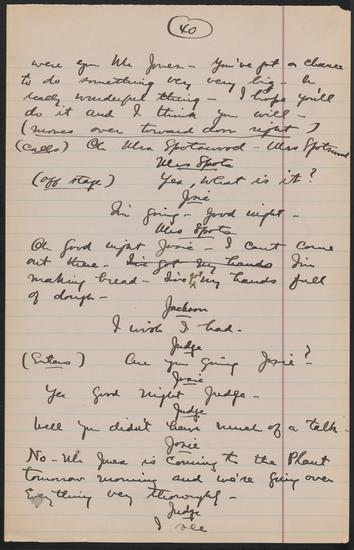 40
were you Mr Jones - You've got a chance
to do something very very big - a
really wonderful thing - I hope you'll
do it and I think you will -
(moves over toward door right)
(Calls) Oh Mrs Spotswood - Mrs Spotswood
Mrs Spots
(off stage) Yes, What is it?
Josie
I'm going - Good night -
Mrs Spots
Oh Good night Josie - I can't come
out there - I've got my hands I'm
making bread - I've my hands full
of dough -
Jackson
I wish I had -
Judge
(Enters) Are you going Josie?
Josie
Yes Good night Judge -
Judge
Well you didn't have much of a talk -
Josie
No - Mr Jones is coming to the Plant
tomorrow morning and we're going over
Everything very thoroughly -
Judge
I see